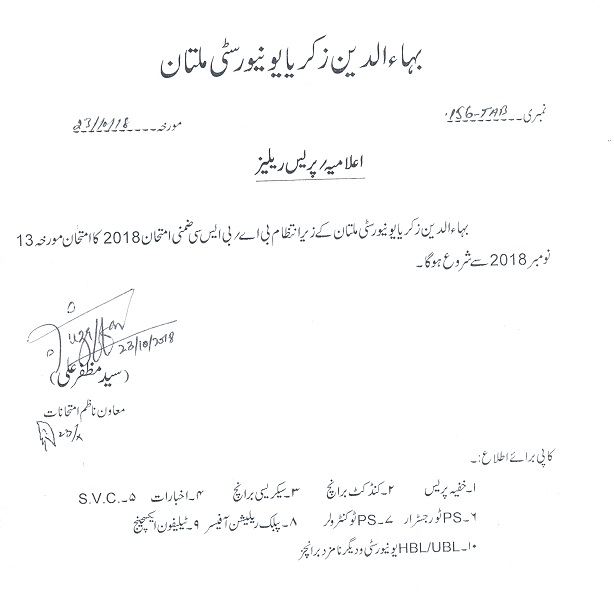 بہاءالدین زکریا یونیورسٹی ملتان
نمبری۔۔ 156-TAB
مورخہ۔۔۔۔ 23/10/18
اعلامیہ/پریس ریلیز
بہاءالدین زکریا یونیورسٹی ملتان کے زیر انتظام بی اے/بی ایس سی ضمنی امتحان 2018 کا امتحان مورخہ 13
نومبر 2018 سے شروع ہوگا۔
23/10/2018
(سید مظفر علی)
معاون ناظم امتحانات
کاپی برائے اطلاع:۔
۱۔خفیہ پریس ۲۔کنڈکٹ برانچ ۳۔سیکریسی برانچ ۴۔اخبارات ۵۔S.V.C.
۶۔PS ٹو رجسٹرار ۷۔PS ٹو کنٹرولر ۸۔پبلک ریلیشن آفیسر ۹۔ٹیلیفون ایکسچینج
۱۰۔HBL/UBL یونیورسٹی و دیگر نامزد برانچز